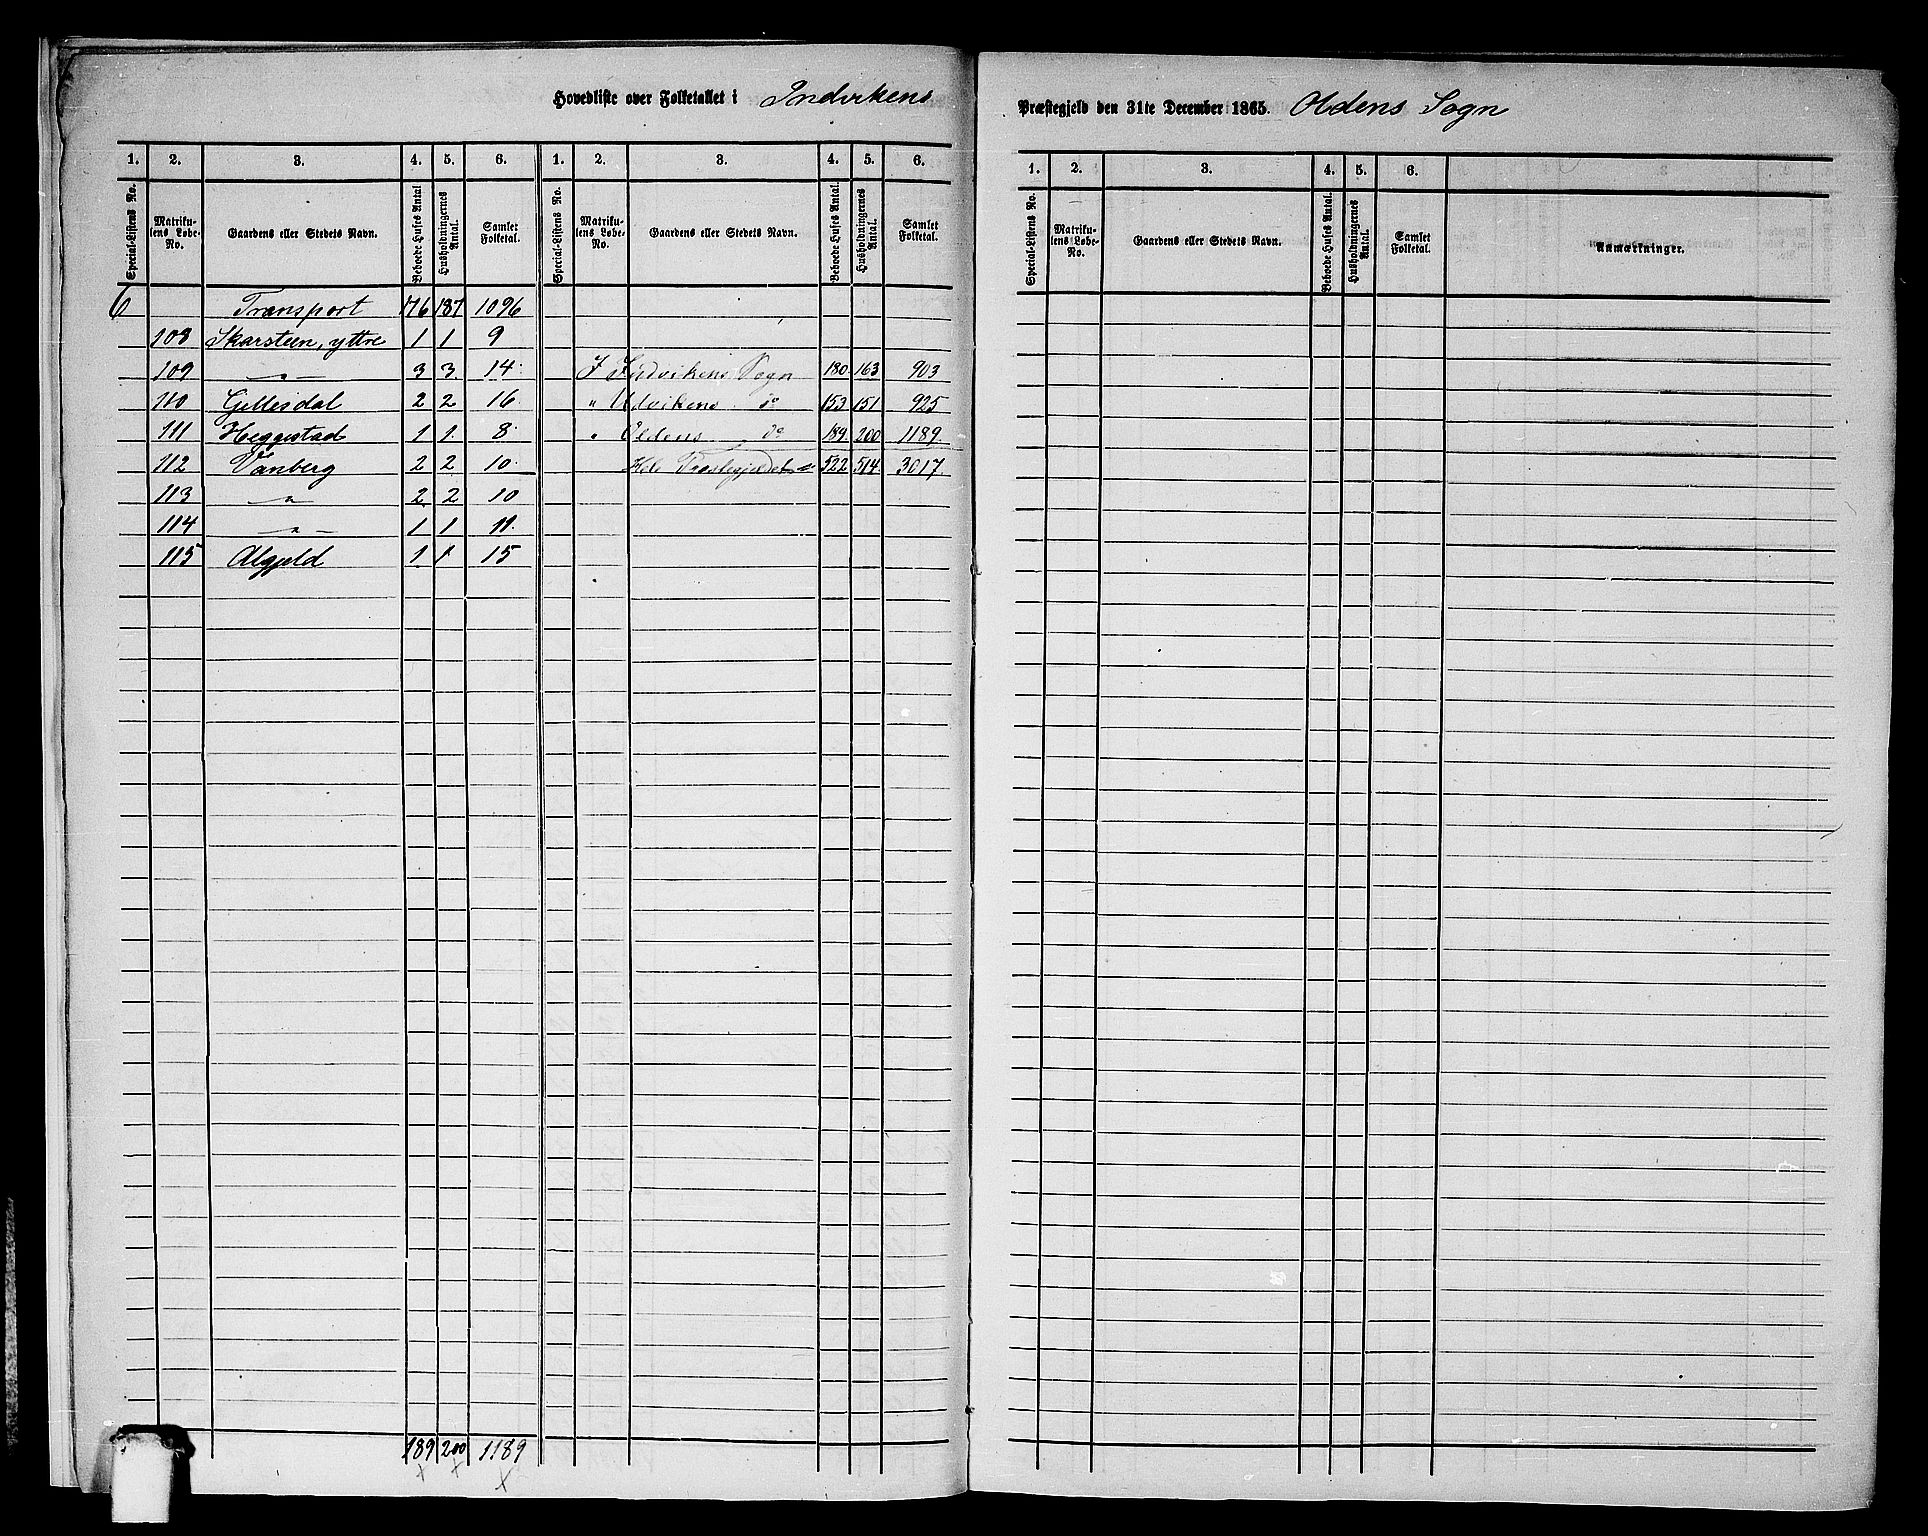 Hovedliste over Folketallet i Indvikens Præstegjeld den 31te December 1865. Oldens Sogn
1. 2. 3. 4. 5. 6. 1. 2. 3. 4. 5. 6.
Special-Listens No. Matrikulens Løbe-No. Gaardens eller Stedets Navn. Beboede Huses Antal Husholdningernes Antal. Samlet Folketal. Special-Listens No. Matrikulens Løbe-No. Gaardens eller Stedets Navn. Beboede Huses Antal. Husholdningernes Antal. Samlet Folketal.
6 Transport 176 187 1096
108 Skarsteen, yttre 1 1 9
109 —"— 3 3. 14.
110 Gillesdal 2 2 16.
111 Heggestad 1 1. 8.
112 Vanberg 2 2 10.
113 —"— 2 2 10
114 —"— 1 1 11.
115 Algjeld 1 1 15
189 200 1189
I Indvikens Sogn 180 163 903
" Udvikens do 153 151 925
" Oldens do 189 200 1189.
Hele Præstegjeldet = 522 514 3017.
1. 2. 3. 4. 5. 6.
Special-Listens No. Matrikulens Løbe-No. Gaardens eller Stedets Navn. Beboede Huses Antal. Husholdningernes Antal. Samlet Folketal. Anmærkninger.